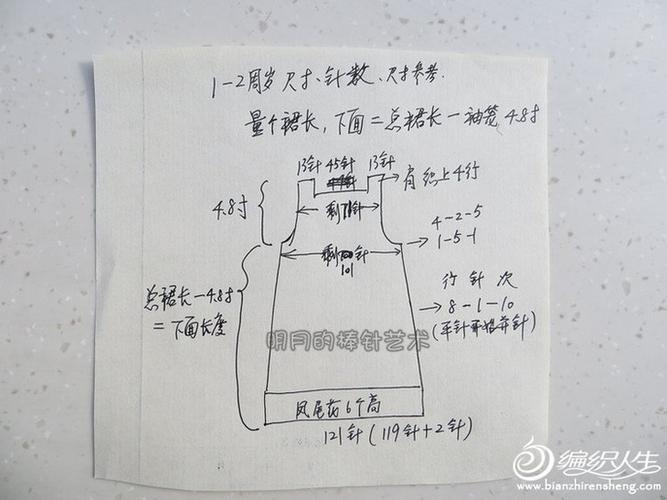 1-2周岁尺寸、针数、尺寸参考.
量个裙长,下面=总裙长-袖笼4.8寸
13针 45针 13针
肩织上4行
4.8寸
剩71针
4-2-5
1-5-1
剩 针
101
总裙长-4.8寸
=下面长度
行 针 次
8-1-10
(平针开始并针)
明月的棒针艺术
凤尾花6个高
121针(119针+2针)
编织人生
www.bianzhirensheng.com